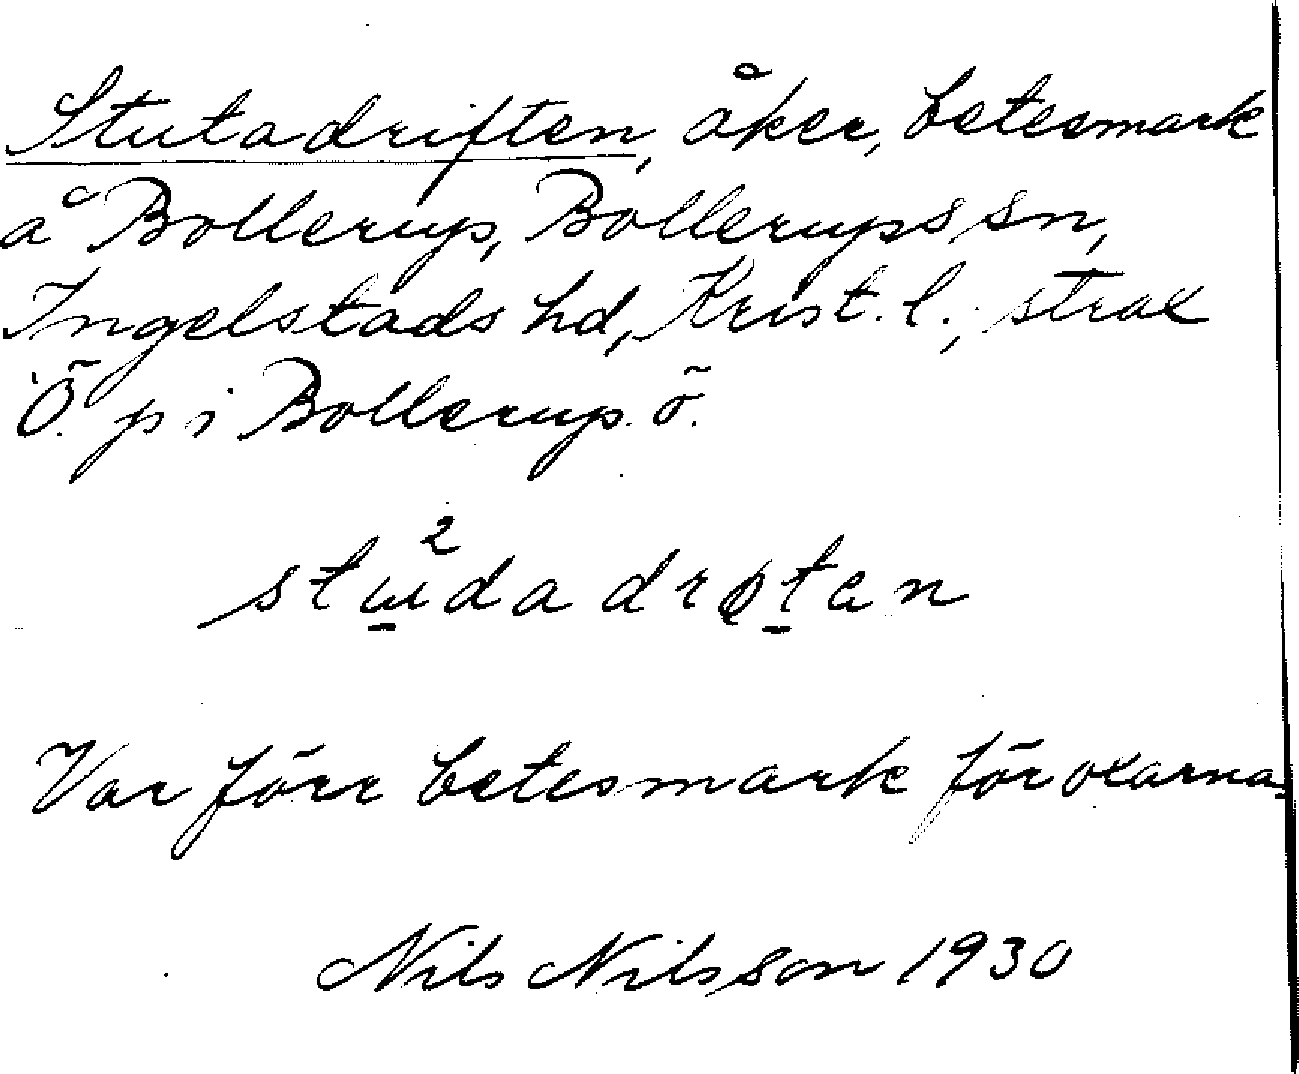 Stutadriften, åker, betesmark
å Bollerup, Bollerups sn,
Ingelstads hd, Krist. l.; strax
Ö. p i Bollerup ö.
2
studa drøten
Var förr betesmark för oxarna.
Nils Nilsson 1930